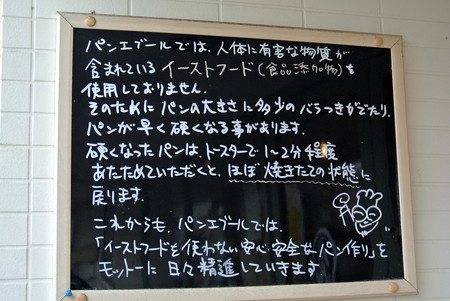 パンエブールでは、人体に有害な物質が
含まれているイーストフード(食品添加物)を
使用しておりません。
そのためにパンの大きさに多少のバラつきがでたり、
パンが早く硬くなる事があります。
硬くなったパンは、トースターで1〜2分程度
あたためていただくと、ほぼ焼きたての状態に
戻ります。
これからも、パンエブールでは、
「イーストフードを使わない安心・安全なパン作り」を
モットーに日々精進していきます